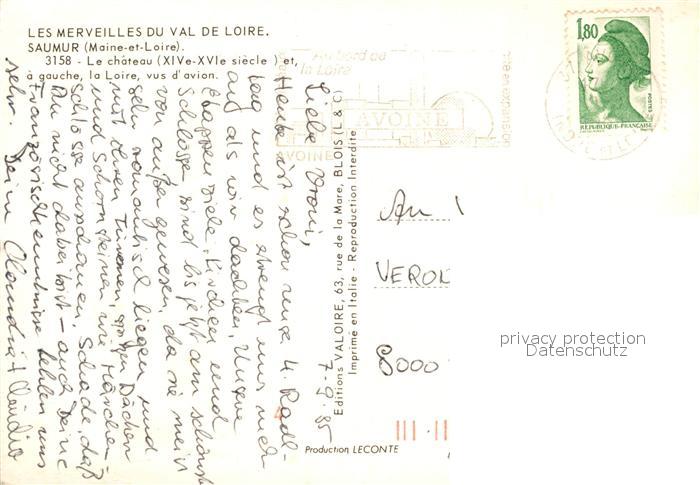 LES MERVEILLES DU VAL DE LOIRE.
SAUMUR (Maine-et-Loire).
3158 - Le château (XIVe-XVIe siècle) et,
à gauche, la Loire, vus d'avion.
Au bord de
la Loire
AVOINE
AVOINE
1,80
POSTES
REPUBLIQUE-FRANÇAISE
7-9-85
Liebe Vroni,
Heute ist schon unser 4. Radl-
tag und es strengt uns mehr
auf als wir dachten. Unsere
Etappenziele, Kirchen und
Schlösser sind bis jetzt am schönsten
von außen gewesen, da sie meist
sehr romantisch liegen und
mit ihren Türmen, Dächern
und Schornsteinen wie Märchen-
schlösser ausschauen. Schade, daß
Du nicht dabei bist - auch Deine
Französischkenntnisse fehlen uns
sehr. Deine Claudia + Claudia
Editions VALOIRE, 63, rue de la Mare, BLOIS (L. & C)
Imprimé en Italie - Reproduction Interdite
An
VERO
8000
privacy protection
Datenschutz
Production LECONTE